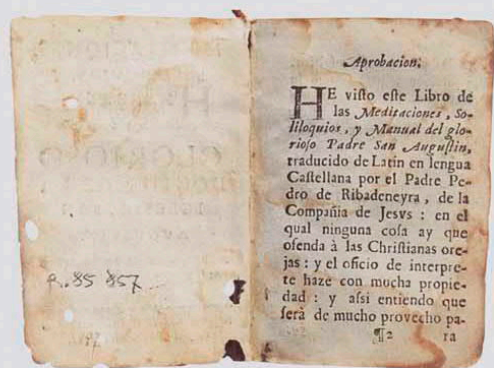 R. 85 857
Aprobacion.
HE visto este Libro de
las Meditaciones, So-
liloquios, y Manual del glo-
rioso Padre San Augustin,
traducido de Latin en lengua
Castellana por el Padre Pe-
dro de Ribadeneyra, de la
Compañia de Jesvs: en el
qual ninguna cosa ay que
ofenda à las Christianas ore-
jas: y el oficio de interpre-
te haze con mucha propie-
dad: y assi entiendo que
serà de mucho provecho pa-
¶2 ra